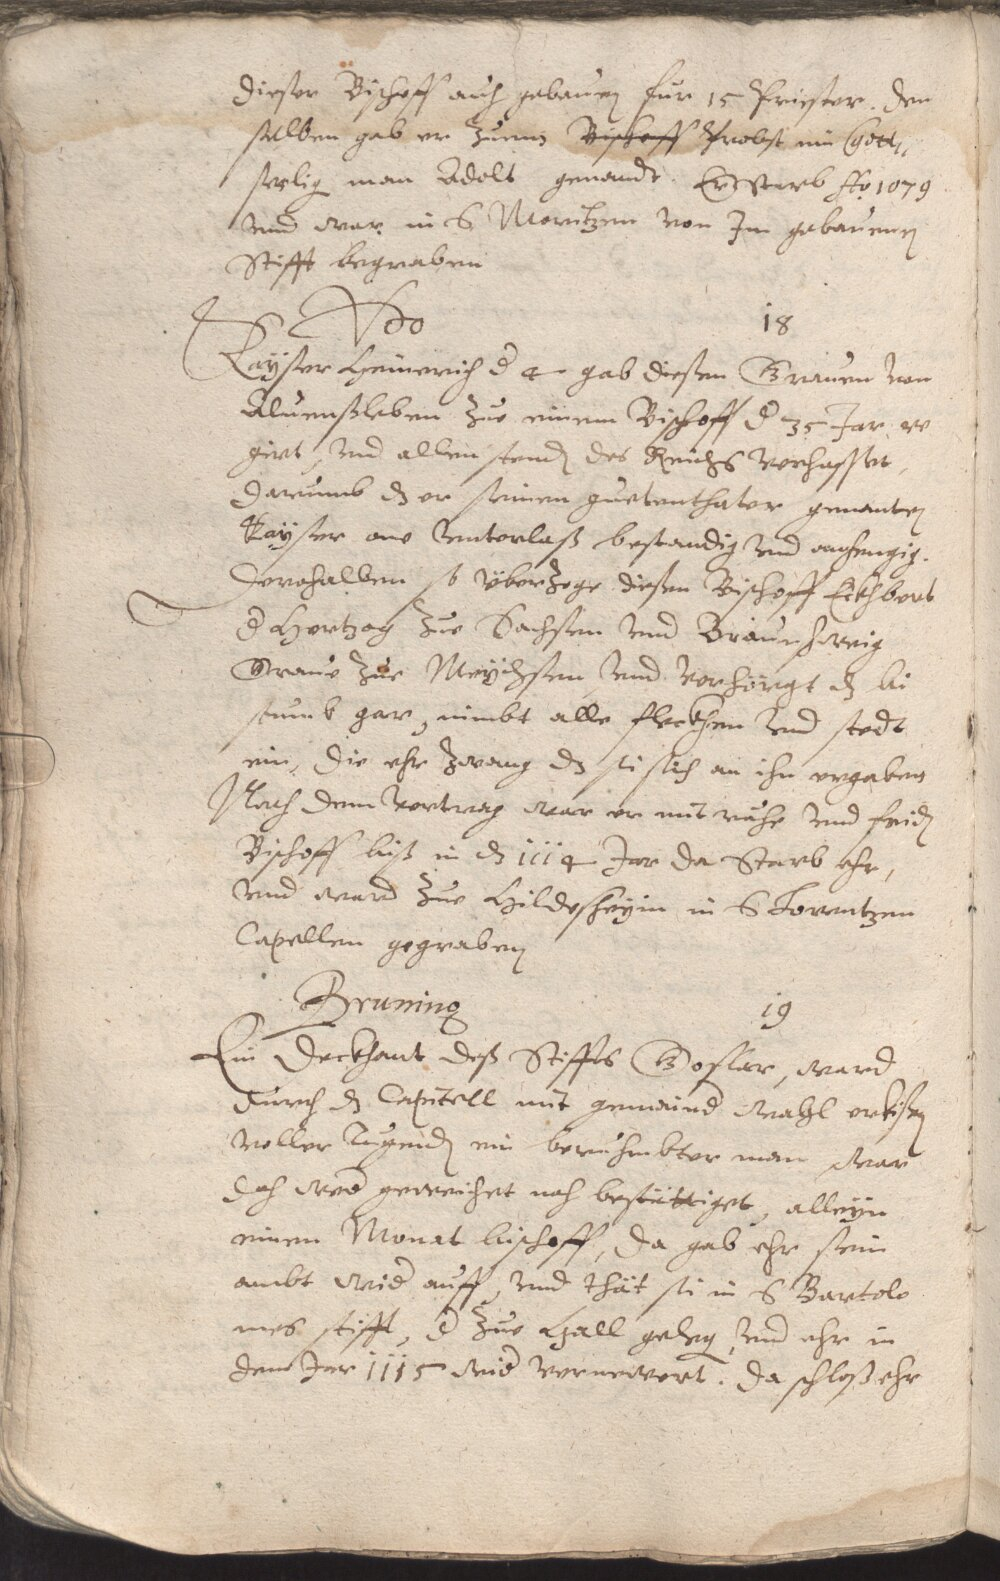 dieser Bischoff auch gebauen für 15 Priester. den
selben gab er zuem Bischoff Probst ein Gott„
selig man Adolt genandt. Er Starb Ao 1079
vnd war in S Moritzen von Im gebauenen
Stifft begraben
Vdo 18
Kayser Heinerich d 4 gab diesen Grauen von
Aluenßleben zue einem Bischoff d 35 Jar re
girt, vnd allen stend des Reichs verhasset,
darumb dz er seinem guetenthater genanten
Kayser one vnterlaß bestandig vnd anhengig.
Derohalben so vberzoge diesen Bischoff Eckhbert
d Hertzog zue Sachsen vnd Braunschweig
Graue zue Meychsen, vnd verhörgt dz bi
stumb gar, nimbt alle fleckhen vnd stedt
ein, die ehr zwang dz si sich an ihn ergaben
Nach dem vertrag war er mit ruhe vnd frid
Bischoff biß in dz 1114 Jar da Starb ehr,
vnd ward zue Hildesheym in S Lorentzen
Capellen gegraben
Bruning 19
Ein Deckhant deß Stiffts Goslar, ward
durch dz Capitell mit gemaind Wahl erkisen
voller tugend ein beruhmbter man war
doch wed geweichet noch bestättiget, alleyn
einen Monat bischoff, da gab ehr sein
ambt wid auff, vnd thät si in S Bartolo
mes stifft, d zue Hall geleg vnd ehr in
dem Jar 1115 wid vernewert. da schloß ehr